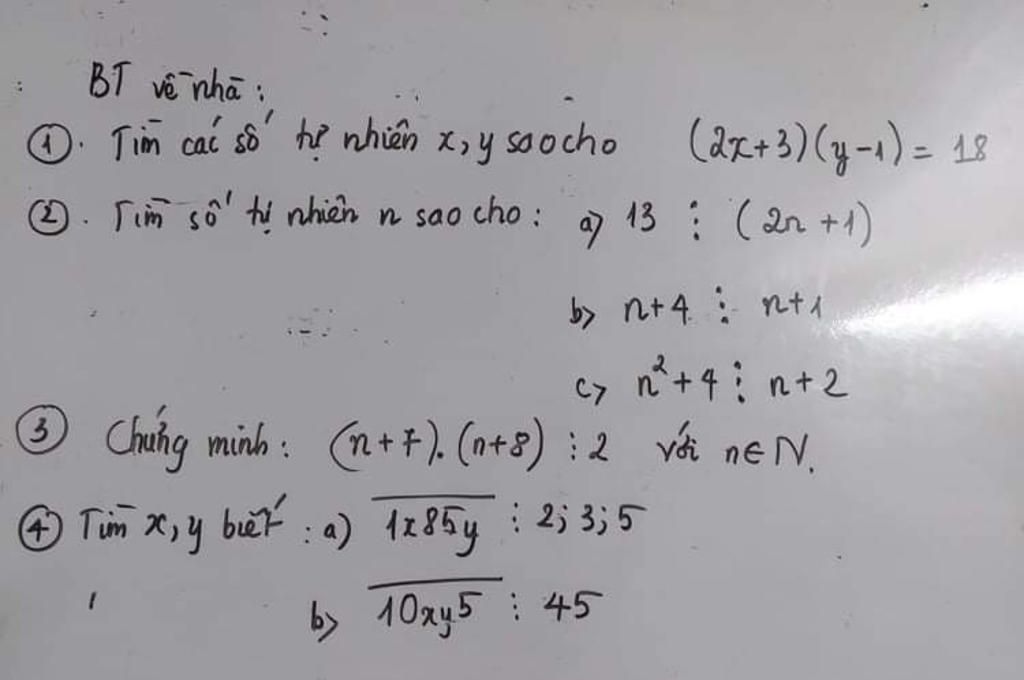 BT về nhà:
①. Tìm các số tự nhiên x, y sao cho (2x+3)(y-1) = 18
②. Tìm số tự nhiên n sao cho: a) 13 ⋮ (2n+1)
b) n+4 ⋮ n+1
c) n²+4 ⋮ n+2
③ Chứng minh: (n+7).(n+8) ⋮ 2 với n∈N.
④ Tìm x, y biết: a) \overline{1x85y} ⋮ 2; 3; 5
b) \overline{10xy5} ⋮ 45